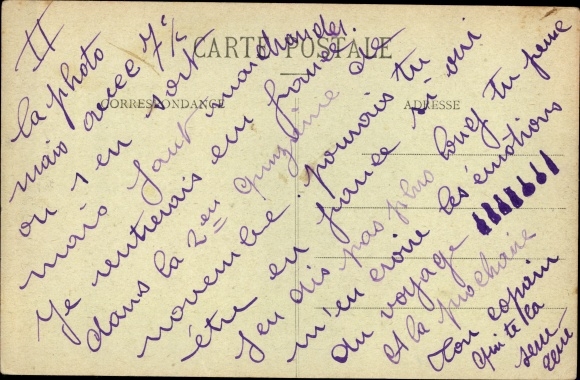 II
CARTE POSTALE
CORRESPONDANCE
ADRESSE
la photo
mais avec 7 f
on s'en sort
mais faut marchander
Je rentrerais en france
dans la 2 en quinzaine de
novembre. pourrais tu
être en france si oui
j'en dis pas plus
m'en croire les émotions
du voyage !!!!!!!
et la prochaine
Ton copain
qui te